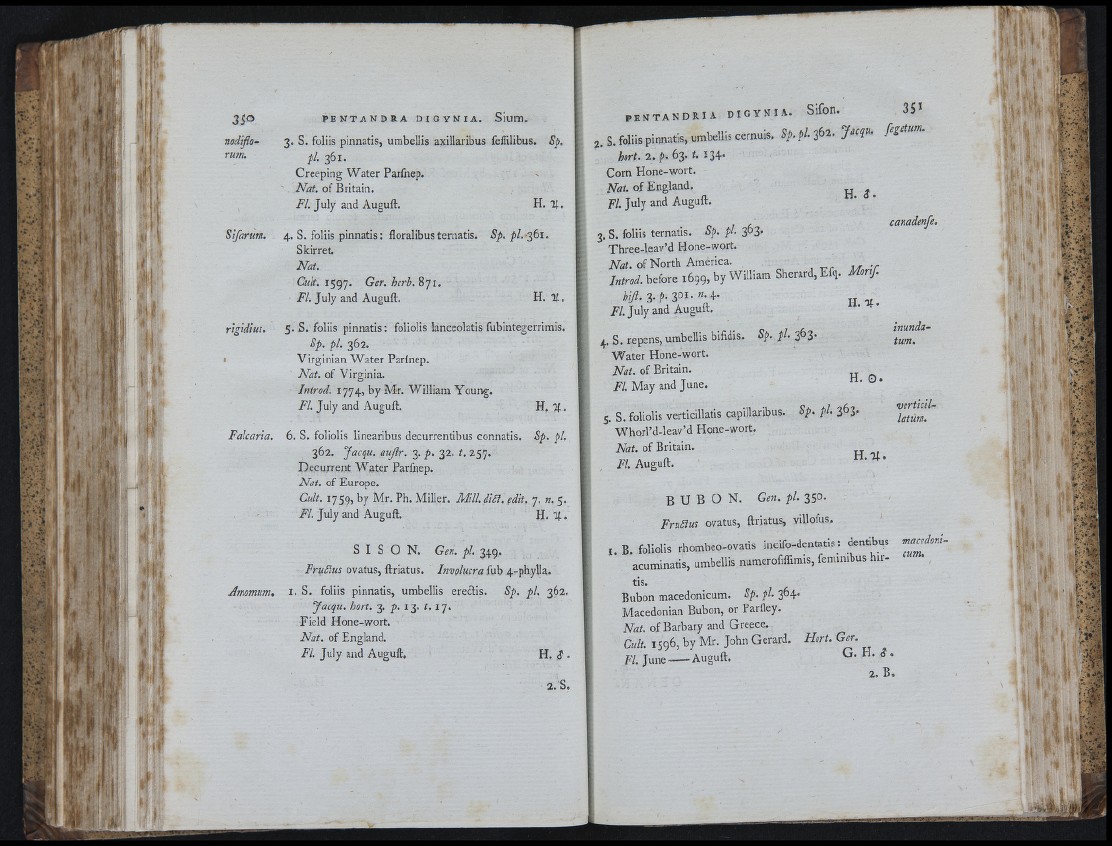 350 PENTANDRA DIGYNIA. Sium.
nodiflo- 3. S. foliis pinnatis, umbellis axillaribus ſeſſilibus. Sp.
rum. pl. 361.
Creeping Water Parſnep.
Nat. of Britain.
Fl. July and Auguſt. H. ♃.
Siſarum. 4. S. foliis pinnatis: floralibus ternatis. Sp. pl. 361.
Skirret.
Nat.
Cult. 1597. Ger. herb. 871.
Fl. July and Auguſt. H. ♃.
rigidius. 5. S. foliis pinnatis: foliolis lanceolatis ſubintegerrimis.
Sp. pl. 362.
Virginian Water Parſnep.
Nat. of Virginia.
Introd. 1774, by Mr. William Young.
Fl. July and Auguſt. H. ♃.
Falcaria. 6. S. foliolis linearibus decurrentibus connatis. Sp. pl.
362. Jacqu. auſtr. 3. p. 32. t. 257.
Decurrent Water Parſnep.
Nat. of Europe.
Cult. 1759, by Mr. Ph. Miller. Mill. dict. edit. 7. n. 5.
Fl. July and Auguſt. H. ♃.
SISON. Gen. pl. 349.
Fructus ovatus, ſtriatus. Involucra ſub 4-phylla.
Amomum. 1. S. foliis pinnatis, umbellis erectis. Sp. pl. 362.
Jacqu. hort. 3. p. 13. t. 17.
Field Hone-wort.
Nat. of England.
Fl. July and Auguſt. H. ♂.
2. S.
PENTANDRIA DIGYNIA. Siſon. 351
2. S. foliis pinnatis, umbellis cernuis. Sp. pl. 362. Jacqu. ſegetum.
hort. 2. p. 63. t. 134.
Corn Hone-wort.
Nat. of England.
Fl. July and Auguſt. H. ♂.
3. S. foliis ternatis. Sp. pl. 363. canadenſe.
Three-leav'd Hone-wort.
Nat. of North America.
Introd. before 1699, by William Sherard, Eſq. Moriſ.
hiſt. 3. p. 301. n. 4.
Fl. July and Auguſt. H. ♃.
4. S. repens, umbellis bifidis. Sp. pl. 363. inunda-
Water Hone-wort. tum.
Nat. of Britain.
Fl. May and June. H. ☉.
5. S. foliolis verticillatis capillaribus. Sp. pl. 363. verticil-
Whorl'd-leav'd Hone-wort. latum.
Nat. of Britain.
Fl. Auguſt. H. ♃.
BUBON. Gen. pl. 350.
Fructus ovatus, ſtriatus, villoſus.
1. B. foliolis rhombeo-ovatis inciſo-dentatis: dentibus macedoni-
acuminatis, umbellis numeroſiſſimis, ſeminibus hir- cum.
tis.
Bubon macedonicum. Sp. pl. 364.
Macedonian Bubon, or Parſley.
Nat. of Barbary and Greece.
Cult. 1596, by Mr. John Gerard. Hort. Ger.
Fl. June — Auguſt. G. H. ♂.
2. B.